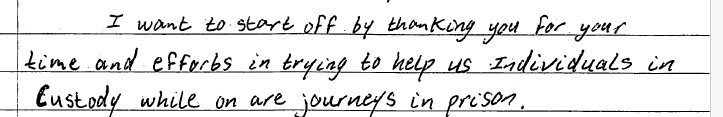 I want to start off by thanking you for your
time and efforts in trying to help us Individuals in
Custody while on are journeys in prison.